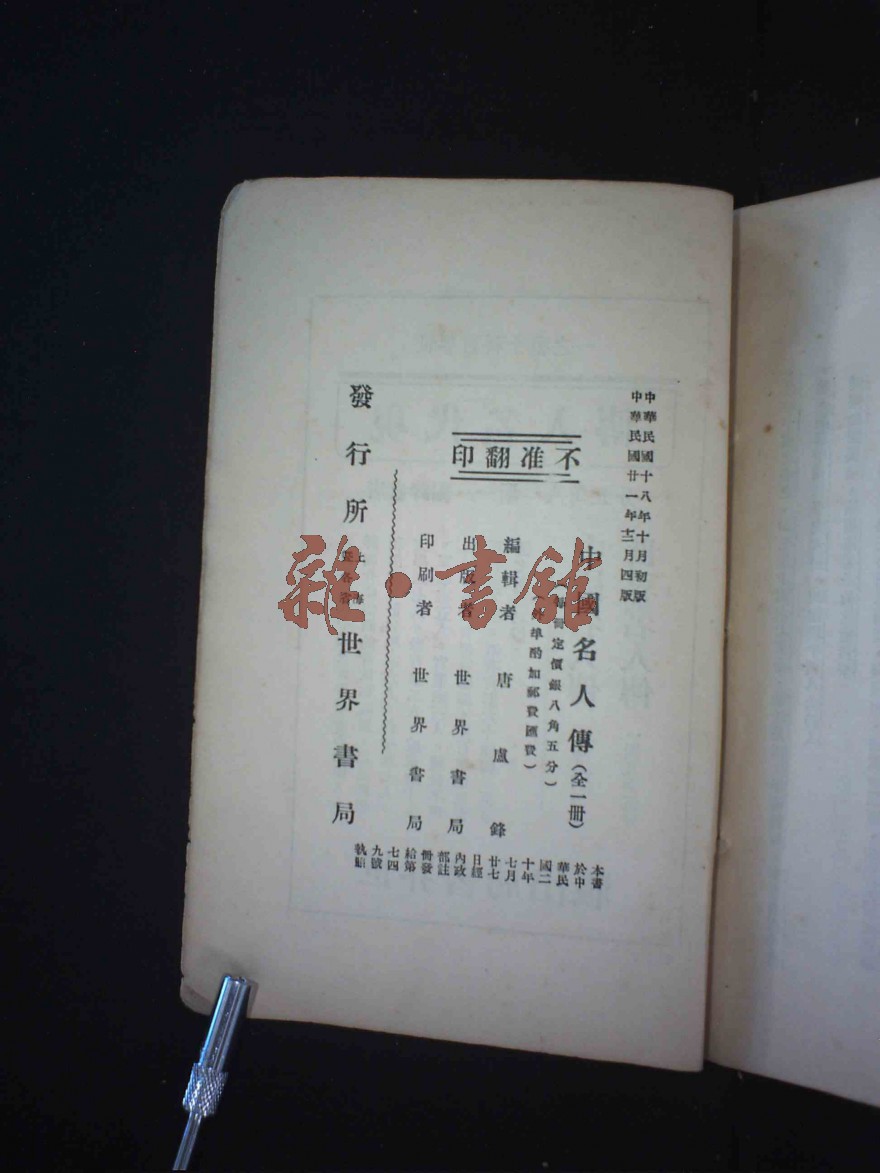 中華民國十八年十月初版
中華民國廿一年十二月四版
中國名人傳(全一冊)
(每冊定價銀八角五分)
(外埠酌加郵費匯費)
不准翻印
編輯者 唐盧鋒
出版者 世界書局
印刷者 世界書局
發行所 上海 世界書局
本書
於中
華民
國二
十年
七月
廿七
日經
內政
部註
冊發
給第
七四
九號
執照
雜·書館